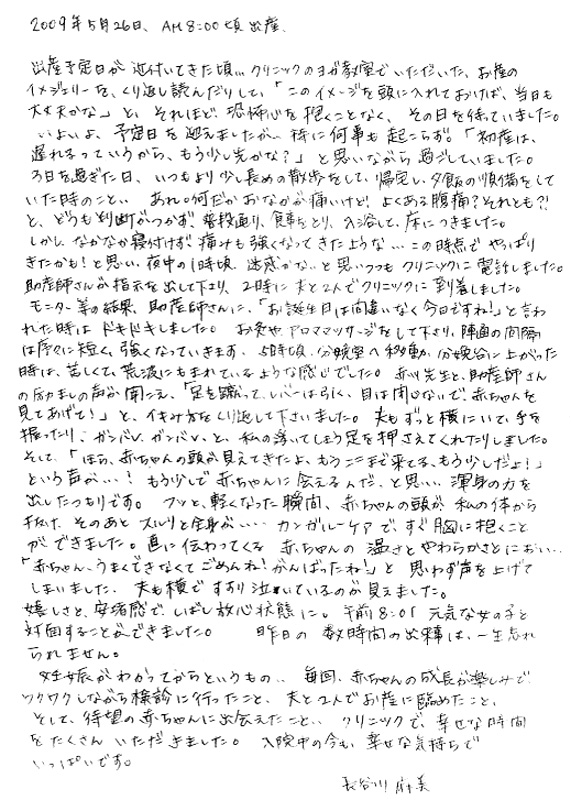 2009年5月26日、AM8:00頃出産.
出産予定日が近付いてきた頃… クリニックのヨガ教室でいただいた、お産の
イメジェリーを、くり返し読んだりして、「このイメージを頭に入れておけば、当日も
大丈夫かな」と、それほど、恐怖心を抱くことなく、その日を待っていました。
いよいよ、予定日を迎えましたが、特に何事も起こらず。「初産は、
遅れるっていうから、もう少し先かな?」と思いながら過ごしていました。
3日を過ぎた日、いつもより少し長めの散歩をして、帰宅し、夕飯の準備をして
いた時のこと… あれ。何だかおなかが痛いけど、よくある腹痛?それとも?!
と、どうも判断がつかず、普段通り、食事をとり、入浴して、床につきました。
しかし、なかなか寝付けず、痛みも強くなってきたような… この時点でやっぱり
きたかも!と思い、夜中の1時頃、迷惑かな…と思いつつもクリニックに電話しました。
助産師さんが指示を出して下さり、2時に夫と2人でクリニックに到着しました。
モニター等の結果、助産師さんに、「お誕生日は間違いなく今日ですね!」と言わ
れた時はドキドキしました。お灸やアロママッサージをして下さり、陣痛の間隔
は序々に短く、強くなっていきます。5時頃、分娩室へ移動。分娩台に上がった
時は、苦しくて、荒波にもまれているような感じでした。赤川先生と、助産師さん
の励ましの声が聞こえ、「足を蹴って、レバーは引く、目は閉じないで、赤ちゃんを
見てあげて!」と、イキみ方をくり返して下さいました。夫もずっと横にいて、手を
握ったり、ガンバレ、ガンバレ、と、私の浮いてしまう足を押さえてくれたりしました。
そして、「ほら、赤ちゃんの頭が見えてきたよ、もうここまで来てる、もう少しだよ!」
という声が…!もう少しで赤ちゃんに会えるんだ、と思い、渾身の力を
出したつもりです。フッと、軽くなった瞬間、赤ちゃんの頭が私の体から
抜け、そのあとスルリと全身が…. カンガルーケアで、すぐ胸に抱くこと
ができました。直に伝わってくる赤ちゃんの温さとやわらかさとにおい…
「赤ちゃん、うまくできなくてごめんね!がんばったね!」と思わず声を上げて
しまいました。夫も横ですすり泣いているのが見えました。
嬉しさと、安堵感で、しばし放心状態に。午前8:01 元気な女の子と
対面することができました。昨日の数時間の出来事は、一生忘れ
られません。
妊娠がわかってからというもの… 毎回、赤ちゃんの成長が楽しみで
ワクワクしながら検診に行ったこと、夫と2人でお産に臨めたこと、
そして、待望の赤ちゃんに出会えたこと… クリニックで、幸せな時間
をたくさんいただきました。入院中の今も、幸せな気持ちで
いっぱいです。
長谷川 麻美